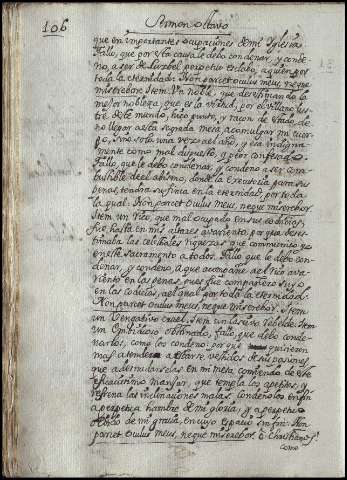 106 Sermon octavo
que en importantes ocupaciones de mi Iglesia.
Fallo, que por esta causa le debo condenar, y conde-
no, a ser de Luzbel perpetuo esclabo, a quien por
toda la eternidad: Non parcet oculus meus, neque
miserebor. Item. Un noble, que desestimando la
mejor nobleza, que es la virtud, por el villano lus-
tre de este mundo, hizo punto, y razon de estado de
no llegar a esta sagrada mesa, a comulgar mi cuer-
po, sino sola una vez al año, y esa indigna-
mente como mal dispuesto, y peor confesado.
Fallo, que le debo condenar, y condeno a ser com-
bustible de el abismo, donde la executoria para su
pena, tendra su fixa en la eternidad, por toda
la qual: Non parcet oculus meus, neque miserebor.
Item un Rico, que mal ocupado en sus codicias,
fue, hasta en mis altares avariento, por que deses-
timaba las celestiales riquezas que communico yo
en este Sacramento a todos. Fallo que le debo con-
denar, y condeno, a que acompañe a el rico ava-
riento en las penas, pues fue compañero suyo
en las codicias, a el qual por toda la eternidad:
Non parcet oculus meus, neque miserebor. Item
un Vengativo cruel, Item un lascivo rebelde. Item
un Embidioso obstinado, fallo, que debo conde-
narlos, como los condeno: por que quisieron
mas atender a estarse vestidos de sus pasiones
que adesnudarselas en mi mesa, comiendo de este
eficacissimo manjar, que templa los apetitos, y
refrena las inclinaciones malas. Condenolos en fin
a perpetua hambre de mi gloria, y a perpetuo
olvido de mi gracia, en cuyo espacio sin fin: Non
parcet oculus meus, neque miserebor. O Christianos!
como